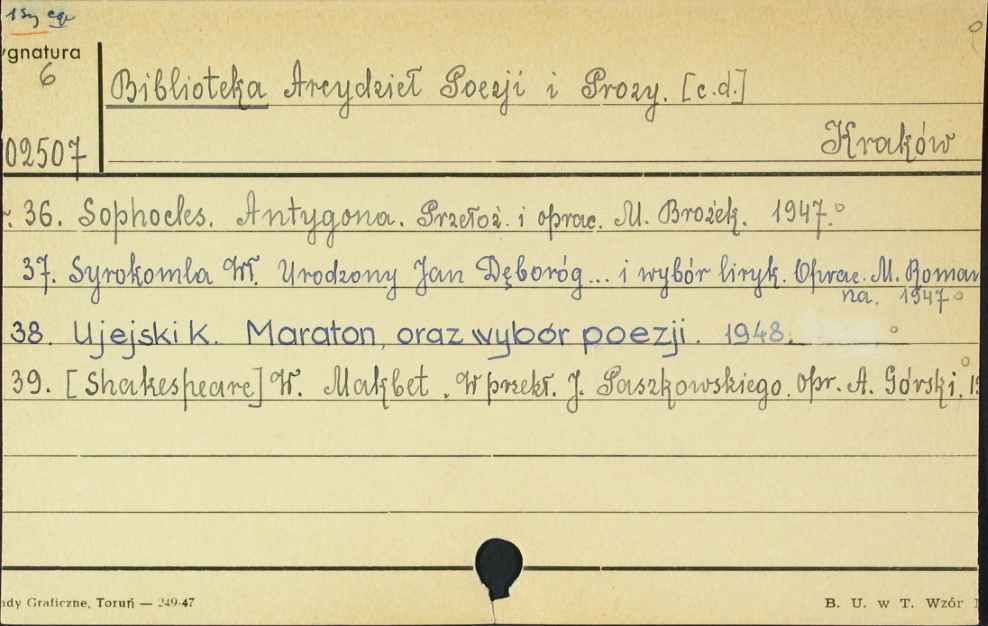 1 Sy egz
ygnatura
6
Biblioteka Arcydzieł Poezji i Prozy. [c.d.]
02507
Kraków
36. Sophocles. Antygona. Przełoż. i oprac. M. Brożek. 1947.
37. Syrokomla Wł. Urodzony Jan Dęboróg... i wybór liryk. Oprac. M. Roman
na. 1947
38. Ujejski K. Maraton, oraz wybór poezji. 1948.
39. [Shakespeare] W. Makbet. W przekł. J. Paszkowskiego. opr. A. Górski. 1
ady Graficzne, Toruń — 249-47
B. U. w T. Wzór